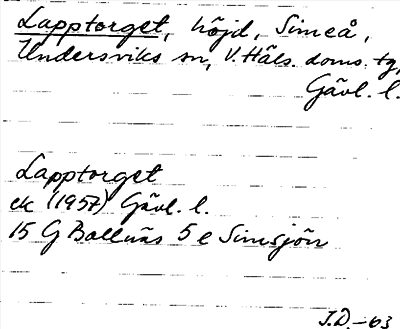 Lapptorget, höjd, Simeå,
Undersviks sn, V. Häls. doms. tg,
Gävl. l.
Lapptorget
ek (1957) Gävl. l.
15 G Bollnäs 5 e Simsjön
J.D. -63